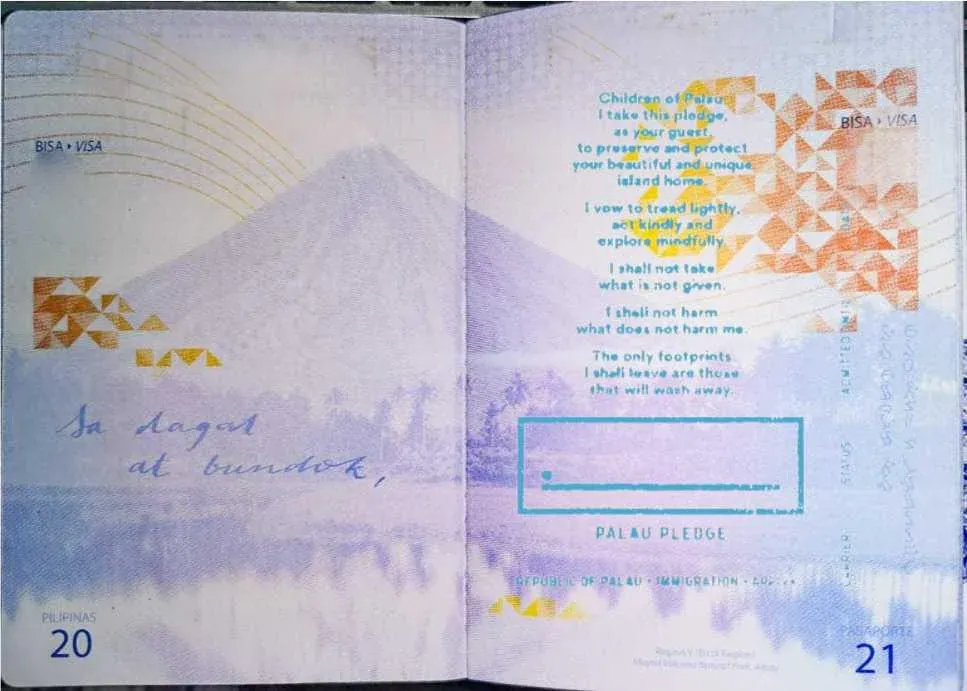 BISA › VISA
Sa dagat
at bundok,
PILIPINAS
20
Children of Palau,
I take this pledge,
as your guest,
to preserve and protect
your beautiful and unique
island home.
I vow to tread lightly,
act kindly and
explore mindfully.
I shall not take
what is not given.
I shall not harm
what does not harm me.
The only footprints
I shall leave are those
that will wash away.
PALAU PLEDGE
REPUBLIC OF PALAU • IMMIGRATION •
BISA › VISA
ADMITTED UNTIL
STATUS
CARRIER
PASAPORTE
21